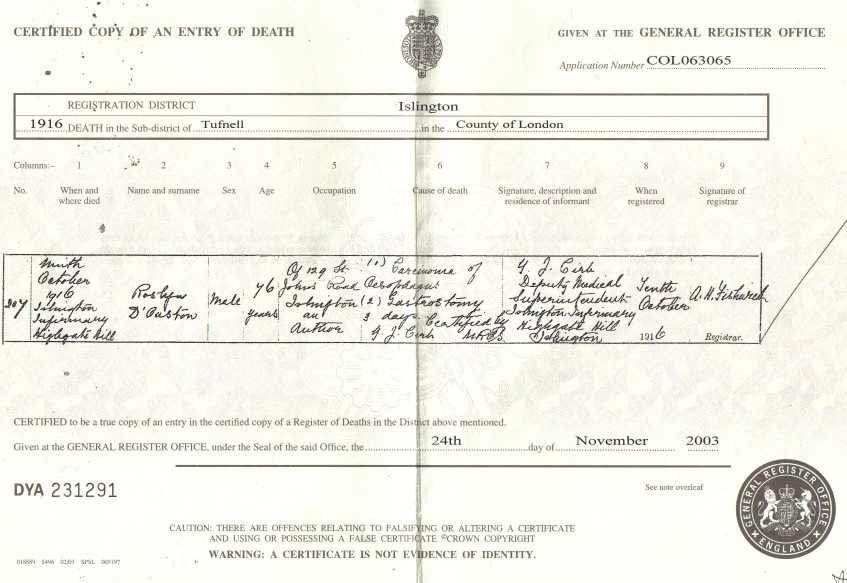 CERTIFIED COPY OF AN ENTRY OF DEATH
GIVEN AT THE GENERAL REGISTER OFFICE
Application Number COL063065
REGISTRATION DISTRICT Islington
1916 DEATH in the Sub-district of Tufnell in the County of London
Columns:- 1 2 3 4 5 6 7 8 9
No. When and where died Name and surname Sex Age Occupation Cause of death Signature, description and residence of informant When registered Signature of registrar
207
Ninth
October
1916
Islington
Infirmary
Highgate Hill
Roslyn
D'Onston
Male
76
years
Of 129 St
Johns Road
Islington
an
Author
(1) Carcinoma of
Oesophagus
(2) Gastrostomy
3 days. Certified by
G. J. MRCS
G. J.
Deputy Medical
Superintendent
Islington Infirmary
Highgate Hill
Islington
Tenth
October
1916
A. H.
Registrar.
CERTIFIED to be a true copy of an entry in the certified copy of a Register of Deaths in the District above mentioned.
Given at the GENERAL REGISTER OFFICE, under the Seal of the said Office, the 24th day of November 2003
DYA 231291
See note overleaf
GENERAL REGISTER OFFICE
ENGLAND
CAUTION: THERE ARE OFFENCES RELATING TO FALSIFYING OR ALTERING A CERTIFICATE
AND USING OR POSSESSING A FALSE CERTIFICATE ©CROWN COPYRIGHT
WARNING: A CERTIFICATE IS NOT EVIDENCE OF IDENTITY.
018889 5496 02/03 SPSL 005197